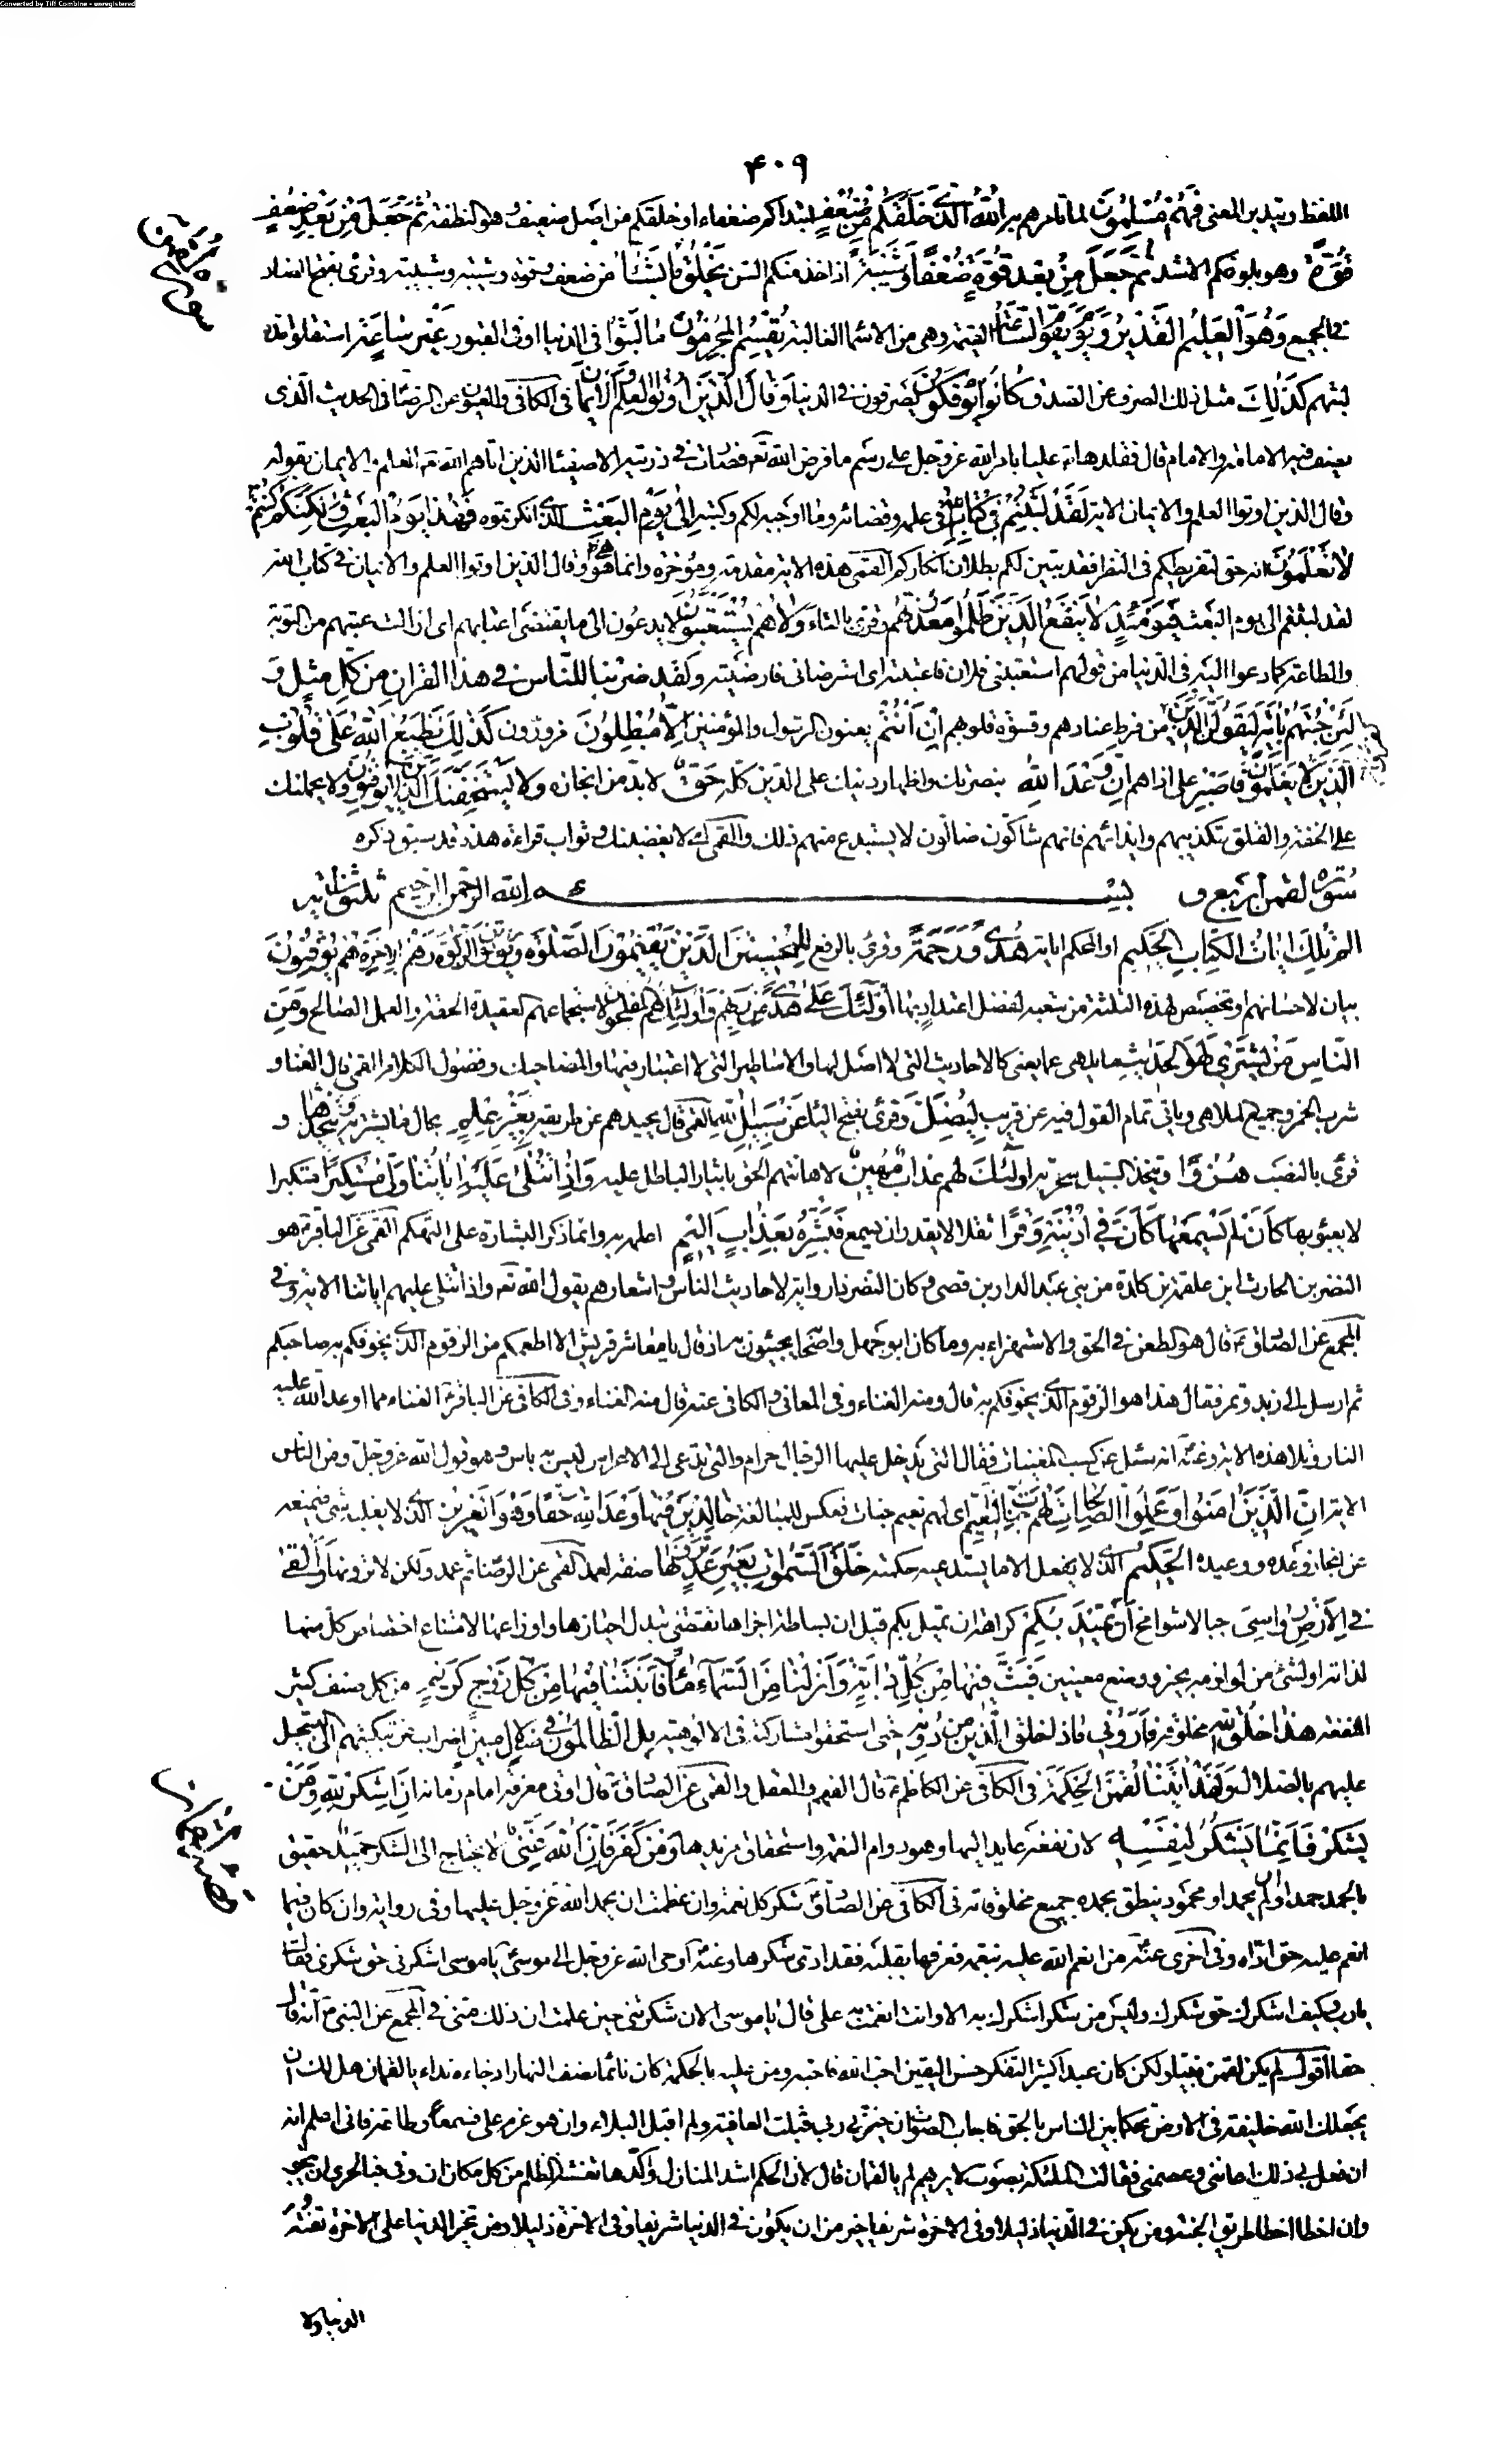 Converted by Tiff Combine - unregistered
۴۰۹
اللفظ ويتدبر المعنى فَهُمْ مُسْلِمُونَ لما تأمرهم به اَللهُ الَّذى خَلَقَكُمْ مِنْ ضُعْفٍ ابتداكم ضعفاء او خلقكم من اصل ضعيف وهو النطفة ثُمَّ جَعَلَ مِنْ بَعْدِ ضُعْفٍ
قُوَّةً وهو بلوغكم الاشد ثُمَّ جَعَلَ مِنْ بَعْدِ قُوَّةٍ ضُعْفًا وَشَيْبَةً اذا اخذ منكم السن يَخْلُقُ مَا يَشَاءُ من ضعف وقوة وشيبة وشبيبة وقرئ بفتح الضاد
فى الجميع وَهُوَ الْعَلِيمُ الْقَدِيرُ وَيَوْمَ تَقُومُ السَّاعَةُ القيمة وهى من الاسماء الغالبة يُقْسِمُ الْمُجْرِمُونَ مَا لَبِثُوا فى الدنيا او فى القبور غَيْرَ سَاعَةٍ استقلوا مدة
لبثهم كَذَلِكَ مثل ذلك الصرف عن الصدق كَانُوا يُؤْفَكُونَ يصرفون فى الدنيا وَقَالَ الَّذِينَ اُوتُوا الْعِلْمَ وَالْاِيمَانَ فى الكافى والعيون عن الرضا فى الحديث الذى
يصف فيه الامامة والامام قال فقلدها ص عليا بامر الله عز وجل على رسم ما فرض الله تع فصارت فى ذريته الاصفياء الذين اتاهم الله تع العلم والايمان بقوله
وقال الذين اوتوا العلم والايمان الاية لَقَدْ لَبِثْتُمْ فِى كِتَابِ اللهِ فى علمه وقضائه وما اوجبه لكم وكتبه اِلَى يَوْمِ الْبَعْثِ الذى انكرتموه فَهَذَا يَوْمُ الْبَعْثِ وَلَكِنَّكُمْ كُنْتُمْ
لَا تَعْلَمُونَ انه حق لتفريطكم فى النظر فقد تبين لكم بطلان انكاركم القمى هذه الاية مقدمة ومؤخرة وانما هو وقال الذين اوتوا العلم والايمان فى كتاب الله
لقد لبثتم الى يوم البعث فَيَوْمَئِذٍ لَا يَنْفَعُ الَّذِينَ ظَلَمُوا مَعْذِرَتُهُمْ وقرئ بالتاء وَلَا هُمْ يُسْتَعْتَبُونَ لا يدعون الى ما يقتضى اعتابهم اى ازالة عتبهم من التوبة
والطاعة كما دعوا اليه فى الدنيا من قولهم استعتبنى فلان فاعتبته اى استرضانى فارضيته وَلَقَدْ ضَرَبْنَا لِلنَّاسِ فِى هَذَا الْقُرْآنِ مِنْ كُلِّ مَثَلٍ وَ
لَئِنْ جِئْتَهُمْ بِآيَةٍ لَيَقُولَنَّ الَّذِينَ من فرط عنادهم وقسوة قلوبهم اِنْ اَنْتُمْ يعنون الرسول والمؤمنين اِلَّا مُبْطِلُونَ مزورون كَذَلِكَ يَطْبَعُ اللهُ عَلَى قُلُوبِ
الَّذِينَ لَا يَعْلَمُونَ فَاصْبِرْ على اذاهم اِنَّ وَعْدَ اللهِ بنصرتك واظهار دينك على الدين كله حَقٌّ لا بد من انجازه وَلَا يَسْتَخِفَّنَّكَ الَّذِينَ لَا يُوقِنُونَ ولا يحملنك
على الخفة والقلق بتكذيبهم وايذائهم فانهم شاكون ضالون لا يستبدع منهم ذلك والقمى اى لا يغضبنك وثواب قراءة هذه قد سبق ذكره
سورة لقمن اربع و بسم الله الرحمن الرحيم ثلثون اية
الم تِلْكَ اٰيَاتُ الْكِتَابِ الْحَكِيمِ او المحكم اياته هُدًى وَرَحْمَةً وقرئ بالرفع لِلْمُحْسِنِينَ الَّذِينَ يُقِيمُونَ الصَّلٰوةَ وَيُؤْتُونَ الزَّكٰوةَ وَهُمْ بِالْاٰخِرَةِ هُمْ يُوقِنُونَ
بيان لاحسانهم او تخصيص لهذه الثلثة من شعبه لفضل اعتداد بها اُولٰئِكَ عَلٰى هُدًى مِنْ رَبِّهِمْ وَاُولٰئِكَ هُمُ الْمُفْلِحُونَ لاستجماعهم العقيدة الحقة والعمل الصالح وَمِنَ
النَّاسِ مَنْ يَشْتَرِى لَهْوَ الْحَدِيثِ ما يلهى عما يعنى كالاحاديث التى لا اصل لها والاساطير التى لا اعتبار فيها والمضاحيك وفضول الكلام القمى قال الغناء و
شرب الخمر وجميع الملاهى وياتى تمام القول فيه عن قريب لِيُضِلَّ وقرئ بفتح الياء عَنْ سَبِيلِ اللهِ القمى قال يحيدهم عن طريقه بِغَيْرِ عِلْمٍ بحال ما يشتريه وَيَتَّخِذَهَا و
قرئ بالنصب هُزُوًا ويتخذ السبيل سخرية اُولٰئِكَ لَهُمْ عَذَابٌ مُهِينٌ لاهانتهم الحق بايثار الباطل عليه وَاِذَا تُتْلٰى عَلَيْهِ اٰيَاتُنَا وَلّٰى مُسْتَكْبِرًا متكبرا
لا يعبؤ بها كَاَنْ لَمْ يَسْمَعْهَا كَاَنَّ فِى اُذُنَيْهِ وَقْرًا ثقلا لا يقدر ان يسمع فَبَشِّرْهُ بِعَذَابٍ اَلِيمٍ اعلمه به وانما ذكر البشارة على التهكم القمى عن الباقر هو
النضر بن الحارث ابن علقمة بن كلدة من بنى عبد الدار بن قصى وكان النضر ذا رواية لاحاديث الناس واشعارهم يقول الله تع واذا تتلى عليهم اياتنا الاية وفى
المجمع عن الصادق ع قال هو الطعن فى الحق والاستهزاء به وما كان ابو جهل واصحابه يجيئون به اذ قال يا معاشر قريش الا اطعمكم من الزقوم الذى يخوفكم به صاحبكم
ثم ارسل الى زبد وتمر فقال هذا هو الزقوم الذى يخوفكم به قال ومنه الغناء وفى المعانى والكافى عنه قال منه الغناء وفى الكافى عن الباقر الغناء مما اوعد الله عليه
النار وتلا هذه الاية وعنه انه سئل عن كسب المغنيات فقال التى يدخل عليها الرجال حرام والتى تدعى الى الاعراس ليس به باس وهو قول الله عز وجل ومن الناس
الاية اِنَّ الَّذِينَ اٰمَنُوا وَعَمِلُوا الصَّالِحَاتِ لَهُمْ جَنَّاتُ النَّعِيمِ اى لهم نعيم جنات فعكس للمبالغة خَالِدِينَ فِيهَا وَعْدَ اللهِ حَقًّا وَهُوَ الْعَزِيزُ الذى لا يغلبه شئ فيمنعه
عن انجاز وعده ووعيده الْحَكِيمُ الذى لا يفعل الا ما يستدعيه حكمته خَلَقَ السَّمٰوَاتِ بِغَيْرِ عَمَدٍ تَرَوْنَهَا صفة لعمد القمى عن الرضا ثم عمد ولكن لا ترونها وَاَلْقٰى
فِى الْاَرْضِ رَوَاسِىَ جبالا شوامخ اَنْ تَمِيدَ بِكُمْ كراهة ان تميل بكم قيل ان بساطة اجزائها تقتضى تبدل احيازها واوضاعها لامتناع اختصاص كل منها
لذاته او لشئ من لوازمه بحيز ووضع معينين وَبَثَّ فِيهَا مِنْ كُلِّ دَابَّةٍ وَاَنْزَلْنَا مِنَ السَّمَاءِ مَاءً فَاَنْبَتْنَا فِيهَا مِنْ كُلِّ زَوْجٍ كَرِيمٍ من كل صنف كثير
المنفعة هٰذَا خَلْقُ اللهِ مخلوقه فَاَرُونِى مَاذَا خَلَقَ الَّذِينَ مِنْ دُونِهِ حتى استحقوا مشاركته فى الالوهية بَلِ الظَّالِمُونَ فِى ضَلَالٍ مُبِينٍ اضراب عن تبكيتهم الى التسجيل
عليهم بالضلال وَلَقَدْ اٰتَيْنَا لُقْمٰنَ الْحِكْمَةَ فى الكافى عن الكاظم ع قال الفهم والعقل والقمى عن الصادق قال اوتى معرفة امام زمانه اَنِ اشْكُرْ لِلهِ وَمَنْ
يَشْكُرْ فَاِنَّمَا يَشْكُرُ لِنَفْسِهِ لان نفعه عايد اليها وهو دوام النعمة واستحقاق مزيدها وَمَنْ كَفَرَ فَاِنَّ اللهَ غَنِىٌّ لا يحتاج الى الشكر حَمِيدٌ حقيق
بالحمد حمد او لم يحمد او محمود ينطق بحمده جميع مخلوقاته فى الكافى عن الصادق شكر كل نعمة وان عظمت ان يحمد الله عز وجل عليها وفى رواية وان كان فيما
انعم عليه حق اداه وفى اخرى عنه من انعم الله عليه بنعمة فعرفها بقلبه فقد ادى شكرها وعنه اوحى الله عز وجل الى موسى يا موسى اشكرنى حق شكرى فقال
يا رب وكيف اشكرك حق شكرك وليس من شكر اشكرك به الا وانت انعمت به على قال يا موسى الان شكرتنى حين علمت ان ذلك منى فى المجمع عن النبى ص انه قال
حقا اقول لم يكن لقمن نبيا ولكن كان عبدا كثير التفكر حسن اليقين احب الله فاحبه ومن عليه بالحكمة كان نائما نصف النهار اذ جاءه نداء يا لقمان هل لك ان
يجعلك الله خليفة فى الارض تحكم بين الناس بالحق فاجاب الصوت ان خيرنى ربى قبلت العافية ولم اقبل البلاء وان هو عزم على فسمعا وطاعة فانى اعلم انه
ان فعل بى ذلك اعاننى وعصمنى فقالت الملئكة بصوت لا يريهم لم يا لقمان قال لان الحكم اشد المنازل واكدها تغشه الظلم من كل مكان ان وفى فبالحرى ان ينجو
وان اخطا اخطا طريق الجنة ومن يكن فى الدنيا ذليلا وفى الاخرة شريفا خير من ان يكون فى الدنيا شريفا وفى الاخرة ذليلا ومن تخير الدنيا على الاخرة تفته
الدنيا ولا